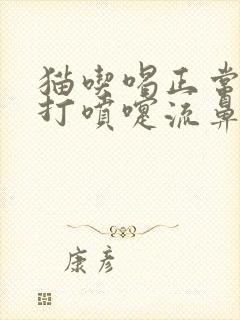 猫喫喝正常
打噴嚏流鼻
康彥